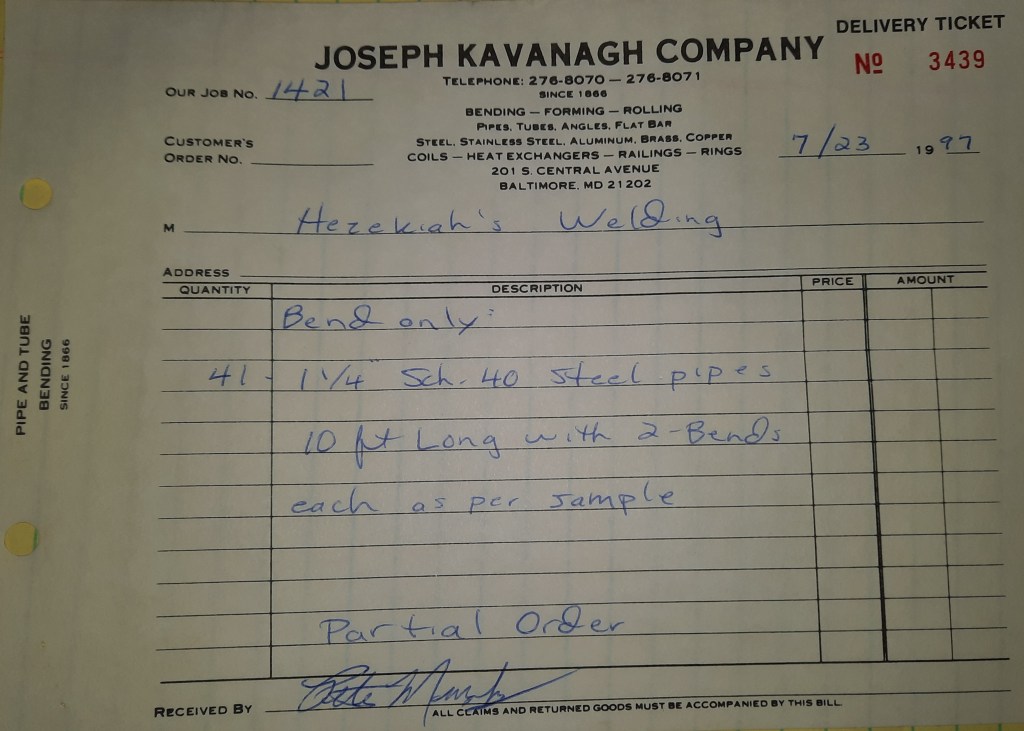 DELIVERY TICKET
JOSEPH KAVANAGH COMPANY
Nº 3439
TELEPHONE: 276-8070 — 276-8071
SINCE 1866
OUR JOB NO. 1421
BENDING — FORMING — ROLLING
PIPES, TUBES, ANGLES, FLAT BAR
CUSTOMER'S
ORDER NO.
STEEL, STAINLESS STEEL, ALUMINUM, BRASS, COPPER
COILS — HEAT EXCHANGERS — RAILINGS — RINGS
7/23 1997
201 S. CENTRAL AVENUE
BALTIMORE, MD 21202
M Hezekiah's Welding
ADDRESS
QUANTITY DESCRIPTION PRICE AMOUNT
Bend only:
41 - 1 1/4" Sch. 40 Steel pipes
10 ft Long with 2-Bends
each as per sample
Partial Order
RECEIVED BY
ALL CLAIMS AND RETURNED GOODS MUST BE ACCOMPANIED BY THIS BILL.
PIPE AND TUBE
BENDING
SINCE 1866